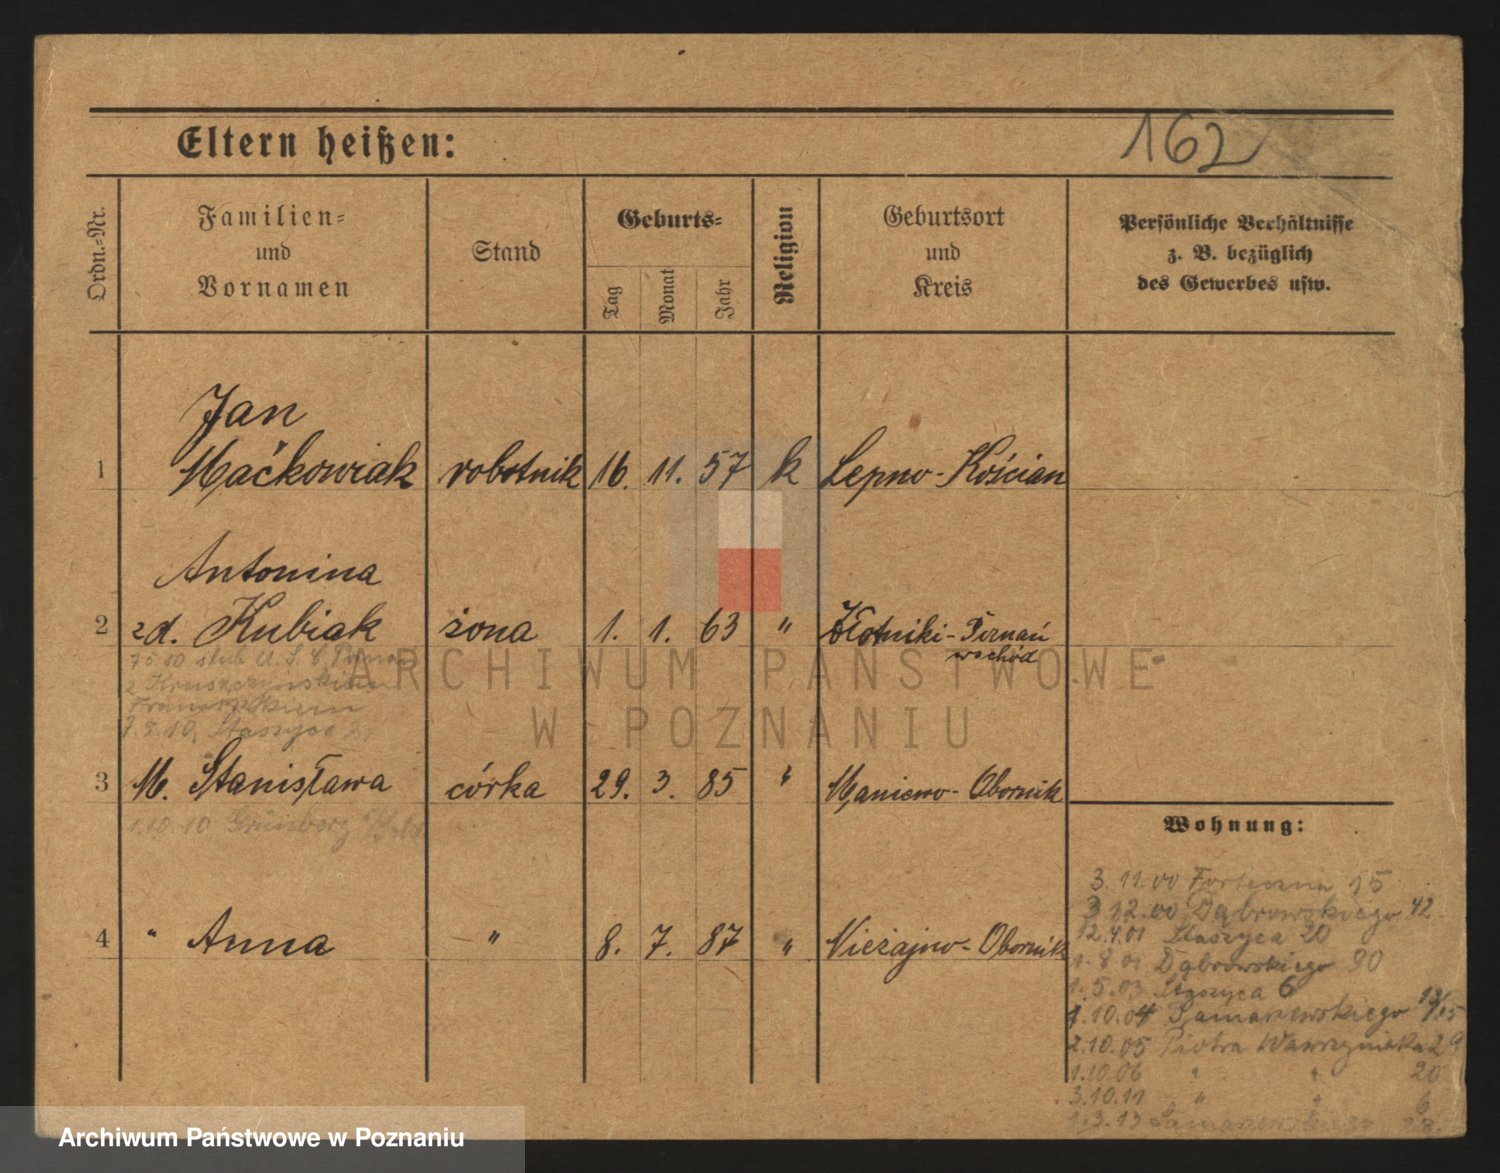 Eltern heißen:
162
Ordn.-Nr.
Familien-
und
Vornamen
Stand
Geburts-
Tag
Monat
Jahr
Religion
Geburtsort
und
Kreis
Persönliche Verhältnisse
z. B. bezüglich
des Gewerbes usw.
Jan
1 Maćkowiak robotnik 16. 11. 57 k Lepno - Kościan
Antonina
2 zd. Kubiak żona 1. 1. 63 " Złotniki - Poznań
wschód
7.5.10 ślub U. S. C. Poznań
z Kruszczyńskim
Franciszkiem
7.5.10, Staszyca
3 M. Stanisława córka 29. 3. 85 " Maniewo - Obornik
1.10.10 Grünberg
4 " Anna " 8. 7. 87 " Nieżajno - Obornik
Wohnung:
3. 11. 00 Forteczna 15
3 12. 00 Dąbrowskiego 42
12.4.01 Staszyca 20
1. 8 01 Dąbrowskiego 90
1. 5. 03 Staszyca 6
1. 10. 04 Szamarzewskiego 13/15
2. 10. 05 Piotra Wawrzyniaka 29
1. 10 06 " " 20
3. 10. 11 " " 6
1. 3. 13 Szamarzewskiego
ARCHIWUM PAŃSTWOWE
W POZNANIU
Archiwum Państwowe w Poznaniu